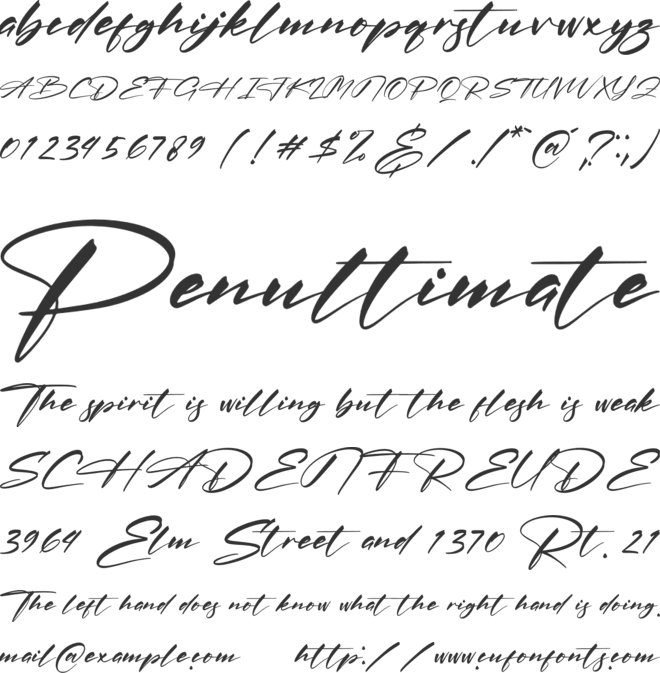 abcdefghijklmnopqrstuvwxyz
ABCDEFGHIJKLMNOPQRSTUVWXYZ
0123456789 (!#$%&/.|*`@´?:;)
Penultimate
The spirit is willing but the flesh is weak
SCHADENFREUDE
3964 Elm Street and 1370 Rt. 21
The left hand does not know what the right hand is doing.
mail@example.com http://www.cufonfonts.com